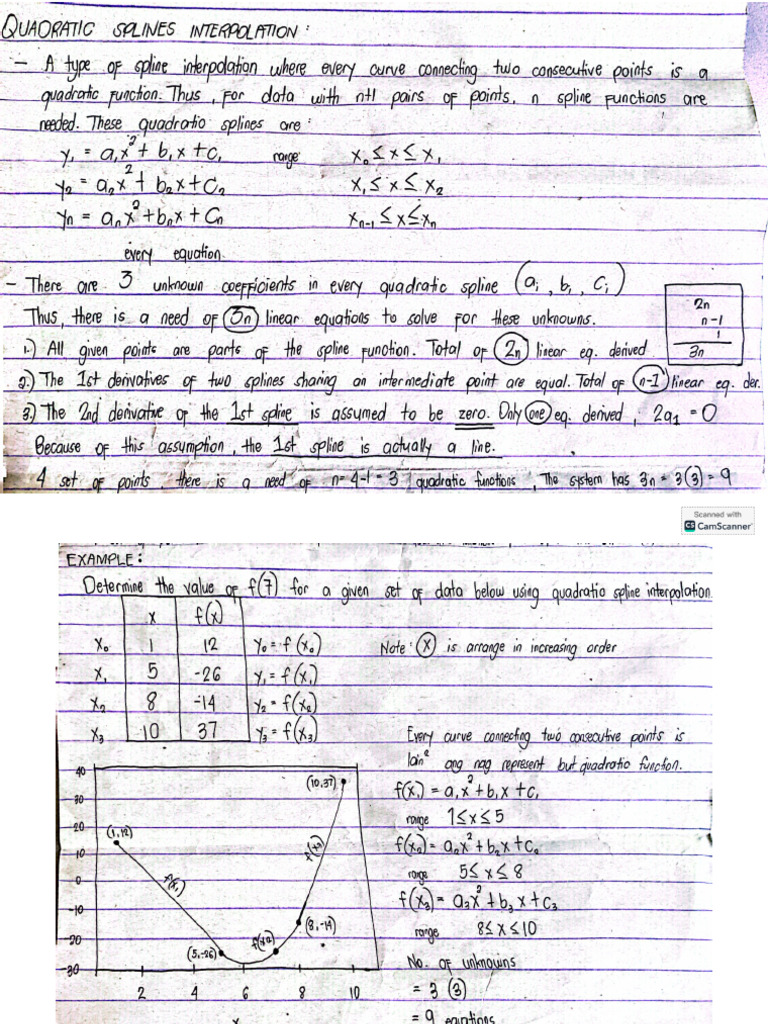 QUADRATIC SPLINES INTERPOLATION:
- A type of spline interpolation where every curve connecting two consecutive points is a
quadratic function. Thus, for data with n+1 pairs of points, n spline functions are
needed. These quadratic splines are:
y₁ = a₁x² + b₁x + c₁ range x₀ ≤ x ≤ x₁
y₂ = a₂x² + b₂x + c₂ x₁ ≤ x ≤ x₂
yₙ = aₙx² + bₙx + cₙ xₙ₋₁ ≤ x ≤ xₙ
every equation.
- There are 3 unknown coefficients in every quadratic spline (aᵢ, bᵢ, cᵢ)
Thus, there is a need of 3n linear equations to solve for these unknowns.
2n
n-1
1
3n
1.) All given points are parts of the spline function. Total of 2n linear eq. derived
2.) The 1st derivatives of two splines sharing an intermediate point are equal. Total of n-1 linear eq. der.
3.) The 2nd derivative of the 1st spline is assumed to be zero. Only one eq. derived, 2a₁ = 0
Because of this assumption, the 1st spline is actually a line.
4 set of points, there is a need of n = 4-1 = 3 quadratic functions, The system has 3n = 3(3) = 9
Scanned with
CS CamScanner
EXAMPLE:
Determine the value of f(7) for a given set of data below using quadratic spline interpolation
x f(x)
x₀ 1 12 y₀ = f(x₀)
x₁ 5 -26 y₁ = f(x₁)
x₂ 8 -14 y₂ = f(x₂)
x₃ 10 37 y₃ = f(x₃)
Note: x is arrange in increasing order
Every curve connecting two consecutive points is
lain² ang nag represent but quadratic function.
f(x₁) = a₁x² + b₁x + c₁
range 1 ≤ x ≤ 5
f(x₂) = a₂x² + b₂x + c₂
range 5 ≤ x ≤ 8
f(x₃) = a₃x² + b₃x + c₃
range 8 ≤ x ≤ 10
No. of unknowns
= 3 (3)
= 9 equations
40
30
20
10
0
-10
-20
-30
(1,12)
f(x₁)
(5,-26)
f(x₂)
(8,-14)
f(x₃)
(10,37)
2 4 6 8 10
x